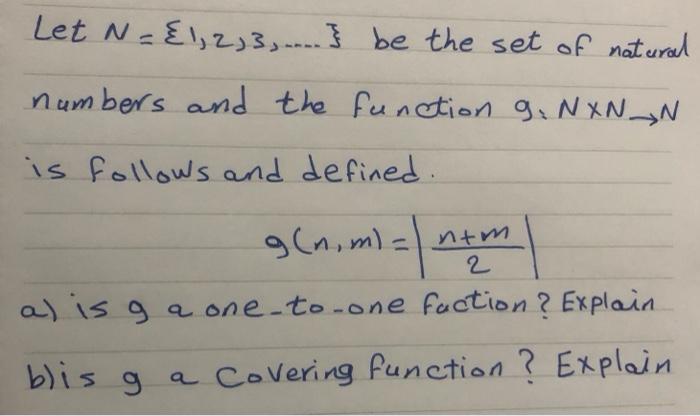 Let N = {1,2,3,....} be the set of natural
numbers and the function g: N×N→N
is follows and defined.
g(n,m) = |n+m/2|
a) is g a one-to-one faction? Explain
b) is g a covering function? Explain